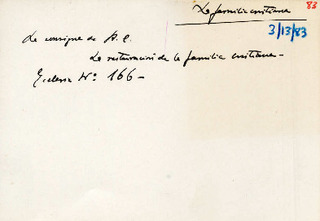 La familia cristiana
83
3/13/83
La consigna de A.C.
La restauración de la familia cristiana –
Ecclesia Nº 166 –